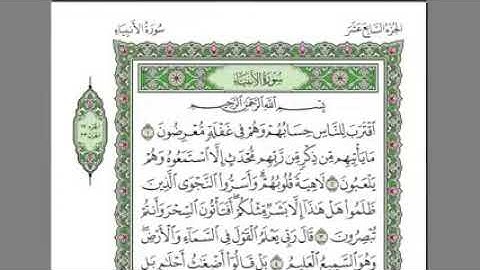 الجزء السابع عشر
سورة الأنبياء
سورة الأنبياء
بسم الله الرحمن الرحيم
ٱقْتَرَبَ لِلنَّاسِ حِسَابُهُمْ وَهُمْ فِى غَفْلَةٍ مُّعْرِضُونَ ١
مَا يَأْتِيهِم مِّن ذِكْرٍ مِّن رَّبِّهِم مُّحْدَثٍ إِلَّا ٱسْتَمَعُوهُ وَهُمْ
يَلْعَبُونَ ٢ لَاهِيَةً قُلُوبُهُمْ وَأَسَرُّوا۟ ٱلنَّجْوَى ٱلَّذِينَ
ظَلَمُوا۟ هَلْ هَٰذَآ إِلَّا بَشَرٌ مِّثْلُكُمْ أَفَتَأْتُونَ ٱلسِّحْرَ وَأَنتُمْ
تُبْصِرُونَ ٣ قَالَ رَبِّى يَعْلَمُ ٱلْقَوْلَ فِى ٱلسَّمَآءِ وَٱلْأَرْضِ
وَهُوَ ٱلسَّمِيعُ ٱلْعَلِيمُ ٤ بَلْ قَالُوٓا۟ أَضْغَٰثُ أَحْلَٰمٍ بَلِ